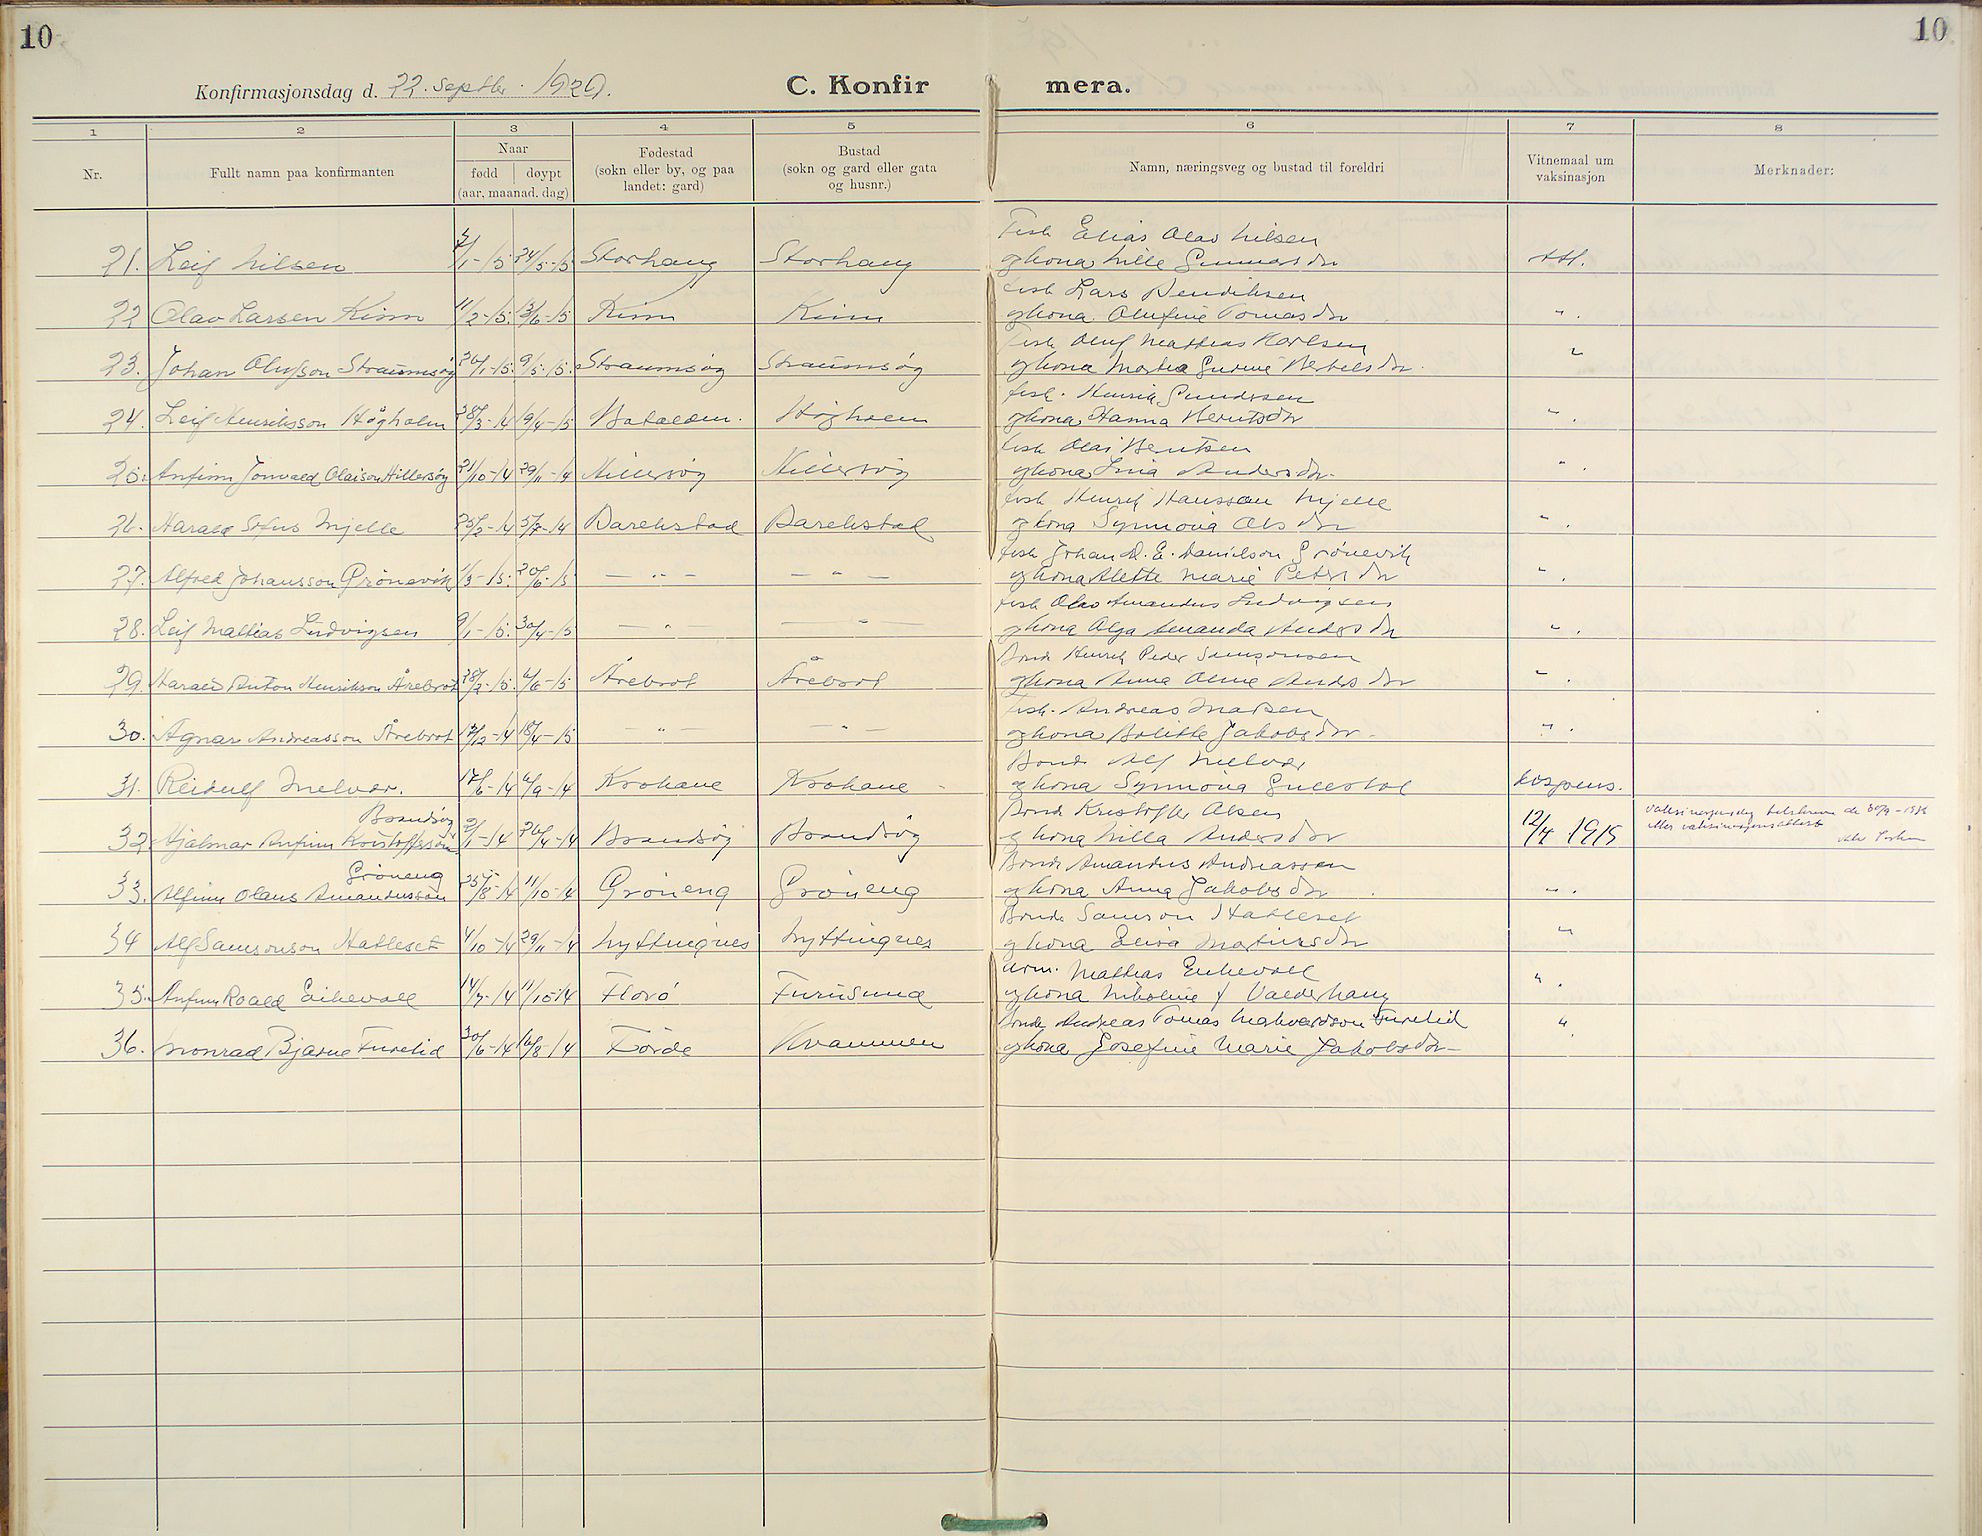 10
10
Konfirmasjonsdag d. 22. Septbr. 1929.
C. Konfir mera.
1 2 3 4 5 6 7 8
Nr.
Fullt namn paa konfirmanten
Naar
fødd døypt
(aar, maanad, dag)
Fødestad
(sokn eller by, og paa
landet: gard)
Bustad
(sokn og gard eller gata
og husnr.)
Namn, næringsveg og bustad til foreldri
Vitnemaal um
vaksinasjon
Merknader:
Fisk Elias Olav Nilsen
21. Leif Nilsen /1-15 24/5-15 Storhaug Storhaug og kona Nille Gunnarsdr att.
fisk Lars Hendriksen
22 Olav Larsen Kinn 11/2-15. 13/6-15 Kinn Kinn og kona Olufine Tomasdr " .
Fisk Oluf Mathias Karlsen
23. Johan Olufson Straumsøy 20/1-15. 9/5-15. Straumsøy Straumsøy og kona Marta Gurine Bertelsdr. "
fisk. Henrik Gundersen
24. Leif Henriksson Høgholm 28/3-14 19/4-15 Batalden. Høgholm og kona Hanna Berntsdr " .
fisk Olai Berntsen
25. Anfinn Jonvald Olaison Hillersøy 21/10-14 29/11-14 Hillersøy Hillersøy og kona Lina Andersdr. " .
fisk Henrik Hansson Mjelle
26. Harald Sofus Mjelle 25/2-14 5/7-14 Barekstad Barekstad og kona Synnøva Olsdr " .
fisk Johan D. E. Danielson Grønevik
27. Alfred Johansson Grønevik /3-15. 20/6-15 — " — — " — og kona Alette Marie Petersdr " .
fisk Olav Amandus Ludvigsen
28. Leif Mathias Ludvigsen 9/1-15. 30/4-15 — " — — " og kona Olga Amanda Andersdr " .
Bonde Henrik Peder Samsonsen
29. Harald Anton Henrikson Årebrot 28/2-15. 6/6-15 Årebrot Årebrot og kona Anna Oline Andersdr " .
Fisk. Andreas Madsen
30. Agnar Andreasson Årebrot 17/12-14 18/4-15 — " — — " — og kona Bolette Jakobsdr. " .
Bonde Alf Melvær
31. Reidulf Melvær. 17/6-14 6/9-14 Krokane Krokane og kona Synnøva Gullestol dispens.
Brandsøy Bonde Kristoffer Olsen
32. Hjalmar Anfinn Kristoffersøn 2/1-14 26/4-14 Brandsøy Brandsøy og kona Nilla Andersdr 12/4 1915
Grøneng Bonde Amandus Andreassen
33. Alfinn Olaus Amandusson 25/8-14 11/10-14 Grøneng Grøneng og kona Anna Jakobsdr " .
Bonde Samson Hatleset
34 Alf Samsonson Hatleset 4/10-14 29/11-14 Nyttingnes Nyttingnes og kona Elisa Martinsdr "
Arm. Mathias Eikevoll
35. Anfinn Roald Eikevoll 14/7-14 11/10-14 Florø Furusund og kona Nikoline f Valderhaug " .
Bonde Andreas Tomas Markvardson Furelid
36. Monrad Bjarne Furelid 30/6-14 16/8-14 Førde Kvammen og kona Josefine Marie Jakobsdr— "